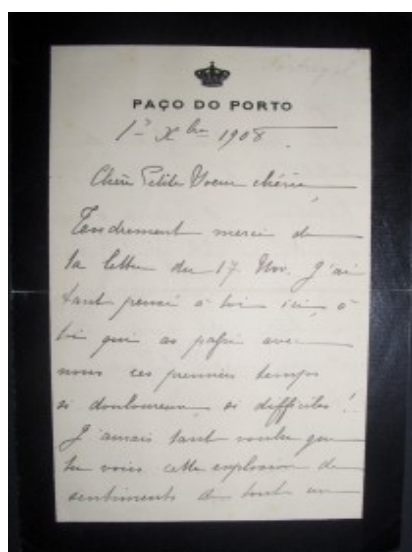 PAÇO DO PORTO
1º Xbre 1908.
Chère Petite Soeur chérie,
Tendrement merci de
ta lettre du 17 Nov. J'ai
tant pensé à toi ici, à
toi qui as passé avec
nous ces premiers temps
si douloureux, si difficiles!
J'aurais tant voulu que
tu voies cette explosion de
sentiments de tout un